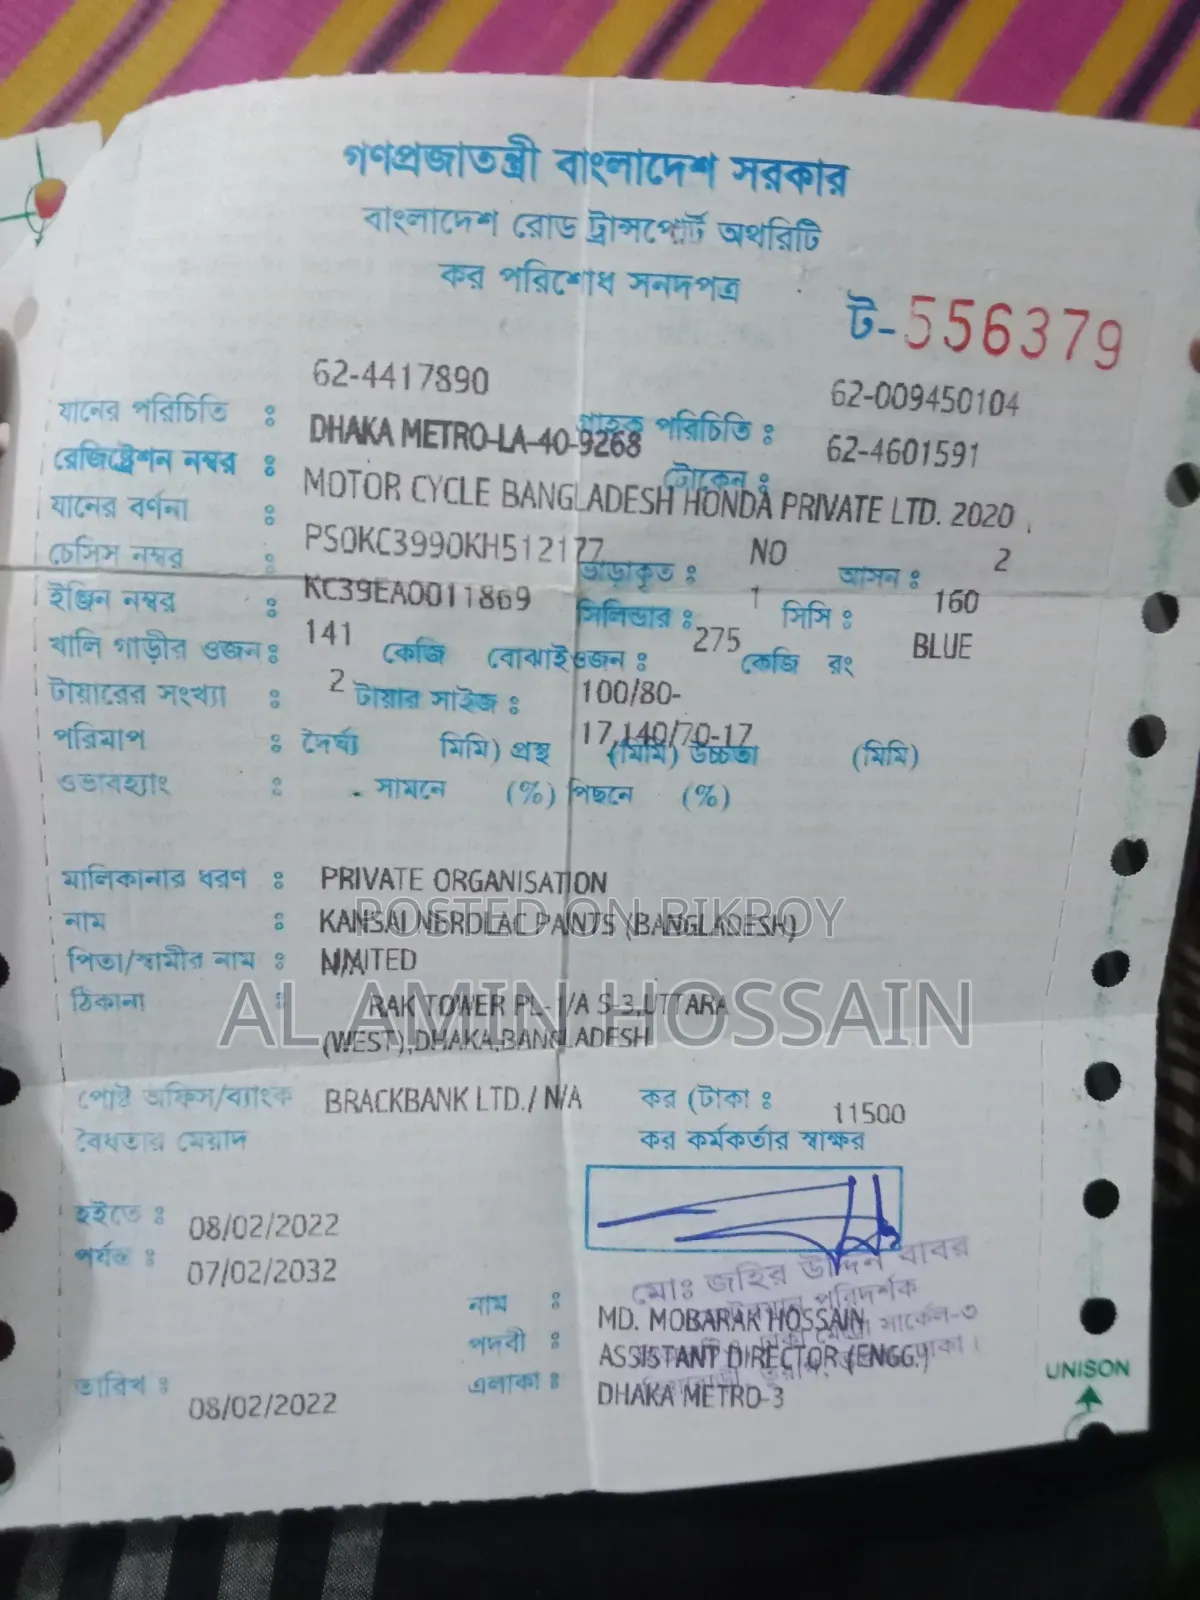 গণপ্রজাতন্ত্রী বাংলাদেশ সরকার
বাংলাদেশ রোড ট্রান্সপোর্ট অথরিটি
কর পরিশোধ সনদপত্র
ট-556379
62-4417890 62-009450104
যানের পরিচিতি : গ্রাহক পরিচিতি :
DHAKA METRO-LA-40-9268 62-4601591
রেজিষ্ট্রেশন নম্বর : টোকেন :
MOTOR CYCLE BANGLADESH HONDA PRIVATE LTD. 2020 ,
যানের বর্ণনা :
PS0KC3990KH512177 NO 2
চেসিস নম্বর : ভাড়াকৃত : আসন :
KC39EA0011869 1 160
ইঞ্জিন নম্বর : সিলিন্ডার : সিসি :
141 275 BLUE
খালি গাড়ীর ওজন : কেজি বোঝাই ওজন : কেজি রং
2 100/80-
টায়ারের সংখ্যা : টায়ার সাইজ :
17,140/70-17
পরিমাপ : দৈর্ঘ্য মিমি) প্রস্থ (মিমি) উচ্চতা (মিমি)
ওভারহ্যাং : সামনে (%) পিছনে (%)
মালিকানার ধরণ : PRIVATE ORGANISATION
POSTED ON BIKROY
নাম : KANSAI NEROLAC PAINTS (BANGLADESH)
পিতা/স্বামীর নাম :
ঠিকানা : RAK TOWER PL-1/A S-3,UTTARA
AL AMIN HOSSAIN
(WEST),DHAKA,BANGLADESH
পোষ্ট অফিস/ব্যাংক BRACKBANK LTD./ N/A কর (টাকা : 11500
বৈধতার মেয়াদ কর কর্মকর্তার স্বাক্ষর
হইতে : 08/02/2022
পর্যন্ত : 07/02/2032
মোঃ জহির উদ্দিন বাবর
পরিদর্শক
নাম : MD. MOBARAK HOSSAIN
সার্কেল-৩
পদবী : ASSISTANT DIRECTOR (ENGG.)
তারিখ : 08/02/2022 এলাকা : DHAKA METRO-3
UNISON